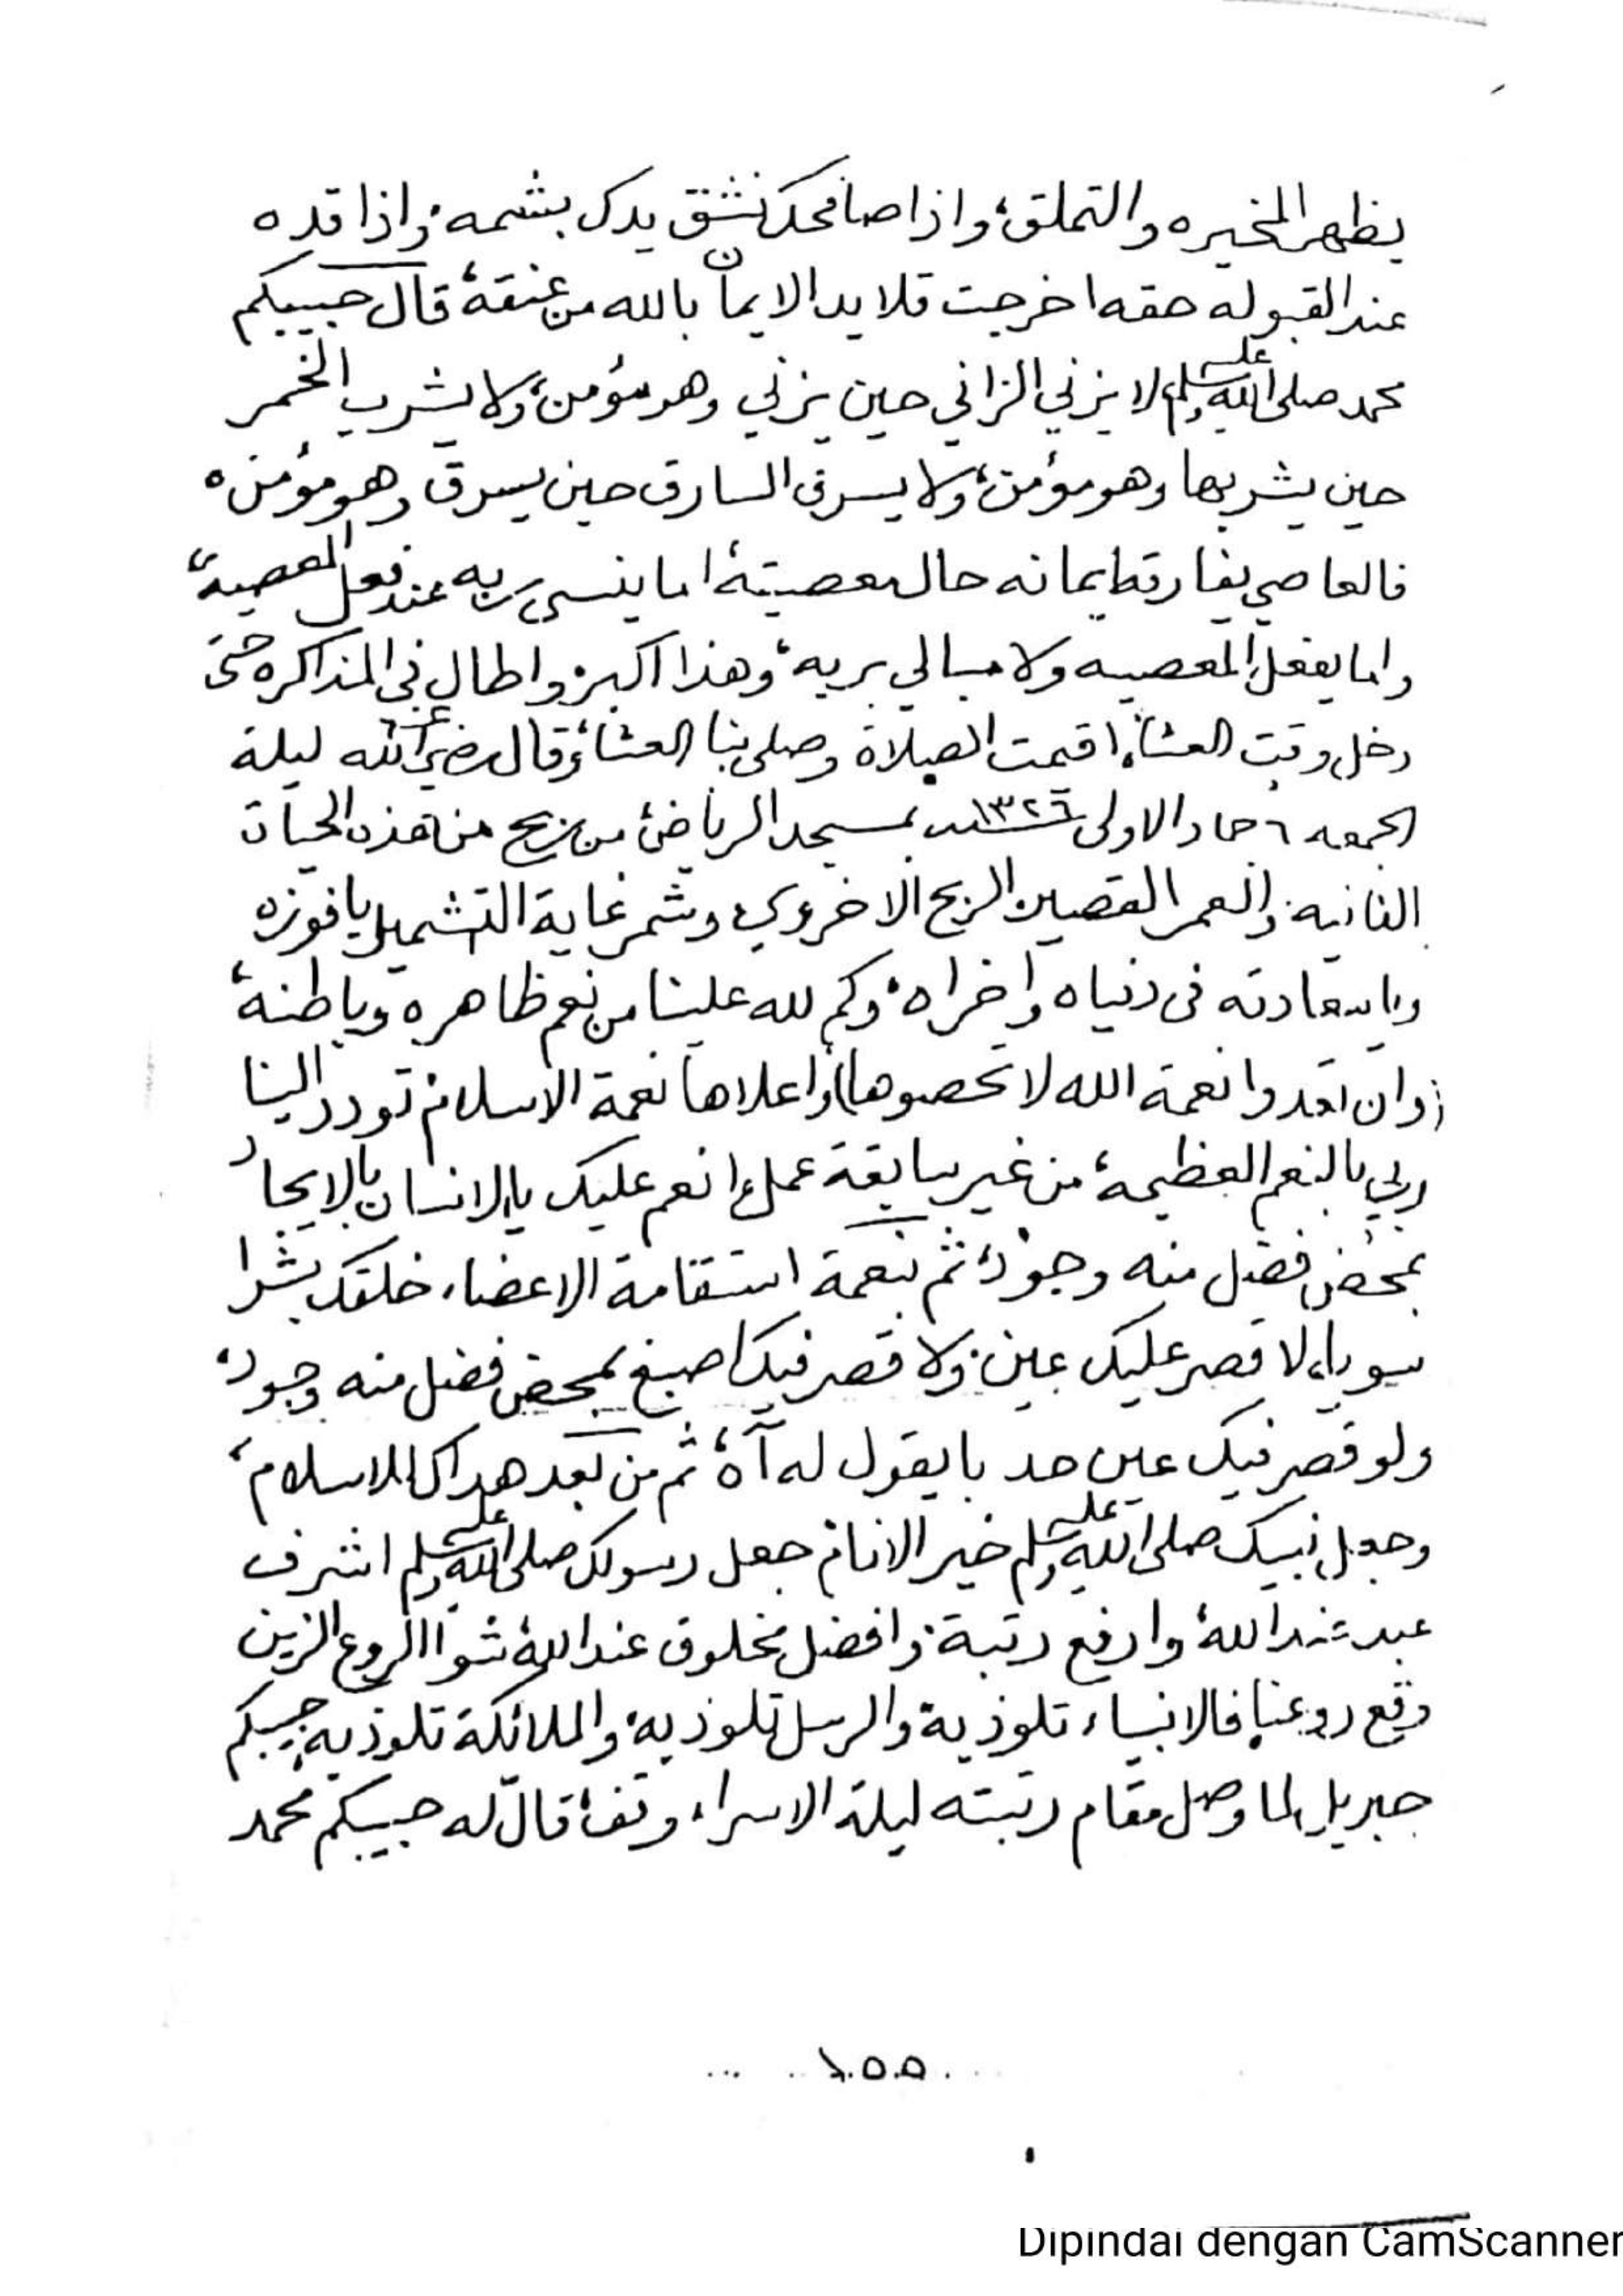 يظهر الخيره والتملق، واذا صافحك نشق يدك بشمه، واذا قده
عند القبوله حقه اخرجت قلايد الايمان بالله من عنقه، قال حبيبكم
محمد صلى الله عليه وسلم لا يزني الزاني حين يزني وهو مؤمن، ولا يشرب الخمر
حين يشربها وهو مؤمن، ولا يسرق السارق حين يسرق وهو مؤمن،
فالعاصي يفارقه ايمانه حال معصيته، اما ينسى ربه عند فعل المعصية،
واما يفعل المعصيه ولا مبالي بربه، وهذا اكبر، واطال في المذاكره حتى
دخل وقت العشاء، اقيمت الصلاة وصلى بنا العشاء، وقال رضي الله عنه ليلة
الجمعه ٦ جماد الاولى سنة ١٣٢٦ بمسجد الرياض، من ربح من هذه الحياة
الفانيه، والعمر القصير، الربح الاخروي، وشمر غاية التشمير، يا فوزه
ويا سعادته في دنياه واخراه، وكم لله علينا من نعم ظاهره وباطنة،
(وان تعدوا نعمة الله لا تحصوها) واعلاها نعمة الاسلام، تودد الينا
ربي بالنعم العظيمة، من غير سابقة عمل، انعم عليك يا الانسان بالايجاد
بمحض فضل منه وجود، ثم بنعمة استقامة الاعضاء، خلقك بشرا
سويا، لا قصر عليك عين، ولا قصر فيك اصبع بمحض فضل منه وجود،
ولو قصر فيك عين حد با يقول له آه، ثم من بعد هداك للاسلام،
وجعل نبيك صلى الله عليه وسلم خير الانام، جعل رسولك صلى الله عليه وسلم اشرف
عبد عند الله، وارفع رتبة، وافضل مخلوق عند الله، شوا الروع الزين
وقع روعنا، فالانبياء تلوذ به، والرسل تلوذ به، والملائكة تلوذ به، حبيبكم
جبريل لما وصل مقام رتبته ليلة الاسراء وقف، قال له حبيبكم محمد
١٥٥
Dipindai dengan CamScanner